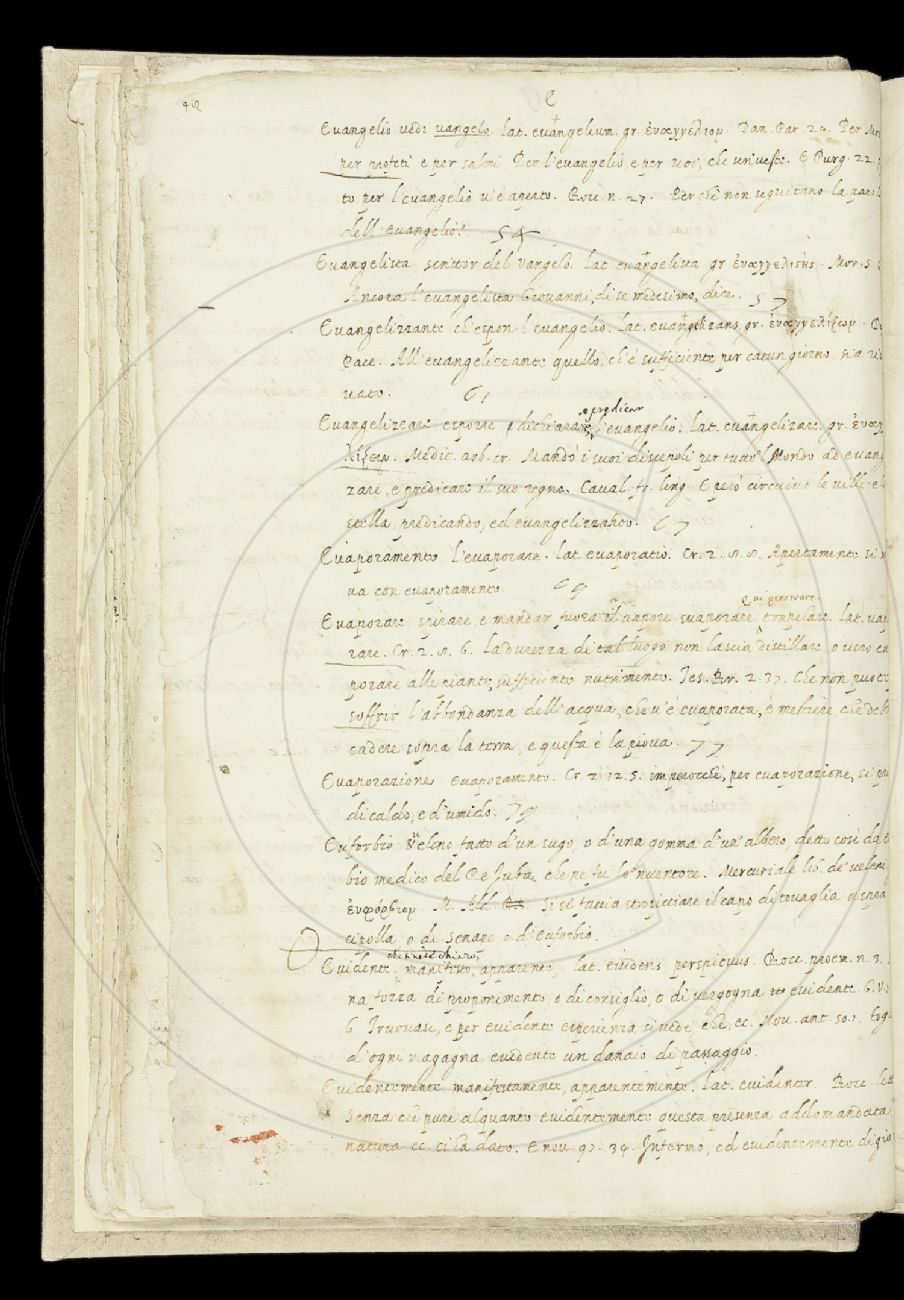 E
Euangelio uedi uangelo lat. euangelium. gr. ἐυαγγέλιομ. Dan. Par. 24. Per
per profeti e per salmi Per l'euangelio, e per uoi, che scriueste. E Purg. 22.
to per l'euangelio u'è aperto. Bocc. n. 27. Perche non seguitano la
dell'euangelio? 54
Euangelista scrittor del Vangelo. lat. euangelista gr. ἐυαγγελιςής. Mor. S.
Ancora l'euangelista Giouanni, di se medesimo, dice. 57
Euangelizzante ch'espon l'euangelio. Lat. euangelizans, gr. ἐυαγγελίζωμ.
Pace. All'euangelizzante quello, ch'è sufficiente per catun giorno, sia
uato. 61
o predicar
Euangelizzare esporre, dichiarare l'euangelio. lat. euangelizare. gr.
λίζειμ. Medit. arb. cr. Mandò i suoi discepoli per tutto 'l Mondo ad
zare, e predicare il suo regno. Caual. fr. ling. E però circuiua le ville
stella, predicando, ed euangelizzando. 67
Euaporamento l'euaporare. lat. euaporatio. Cr. 2. 8. 8. Apertamente si
ua con euaporamento. 69
qui penetrare
Euaporare spirare e mandar fuora il uapore suaporare trapelare. lat.
rare. Cr. 2. 8. 6. La durezza di tal luogo non lascia distillare, o uero
porare alle piante, sufficiente nutrimento. Tes. Br. 2. 37. Che non puote
soffrir l'abbondanza dell'acqua, che u'è euaporata, è mestiere, che
cadere sopra la terra, e questa è la pioua. 77
Euaporazione euaporamento. Cr. 2. 12. 5. imperocche, per euaporazione, si
di caldo, e d'umido. 79
Euforbio Veleno tratto d'un sugo, o d'una gomma d'un albero detto così da
bio medico del Re Juba, che ne fu lo 'nuentore. Mercuriale lib. de'
ἐυφόρβιομ. M. Ald. Si si faccia stropicciare il capo di touaglia aspra
cipolla, o di senape o d'euforbio.
Euidente. manifesto, apparente, lat. euidens, perspicuus. Bocc. proem. n. 3.
na forza di proponimento, o di consiglio, o di uergogna euidente. G. V.
6 Trouasi, e per euidente esperienza si uede, che, ec. Nou. ant. 50. 1.
d'ogni magagna euidente un danaio di passaggio.
Euidentemente manifestamente, apparentemente. lat. euidenter. Bocc.
Senza che pure alquanto euidentemente questa presenza addomandata
natura, ec. ci ha dato. E nou. 97. 34. Infermo, ed euidentemente di